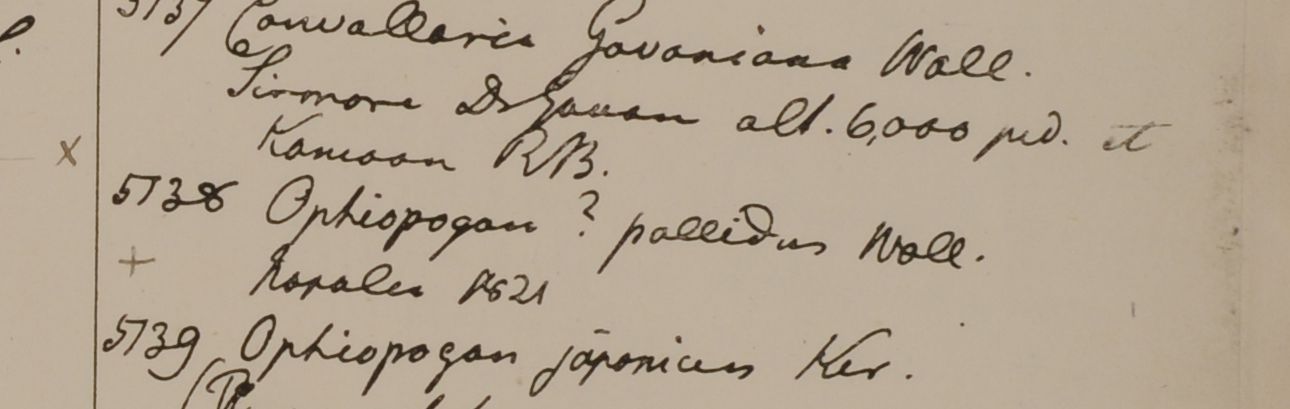 5137 Convallaria Govaniana Wall.
Sirmore Dr Govan alt. 6,000 ped. et
Kamaon RB.
x
5138 Ophiopogon ? pallidus Wall.
+
Napalia 1821
5139 Ophiopogon japonicus Ker.